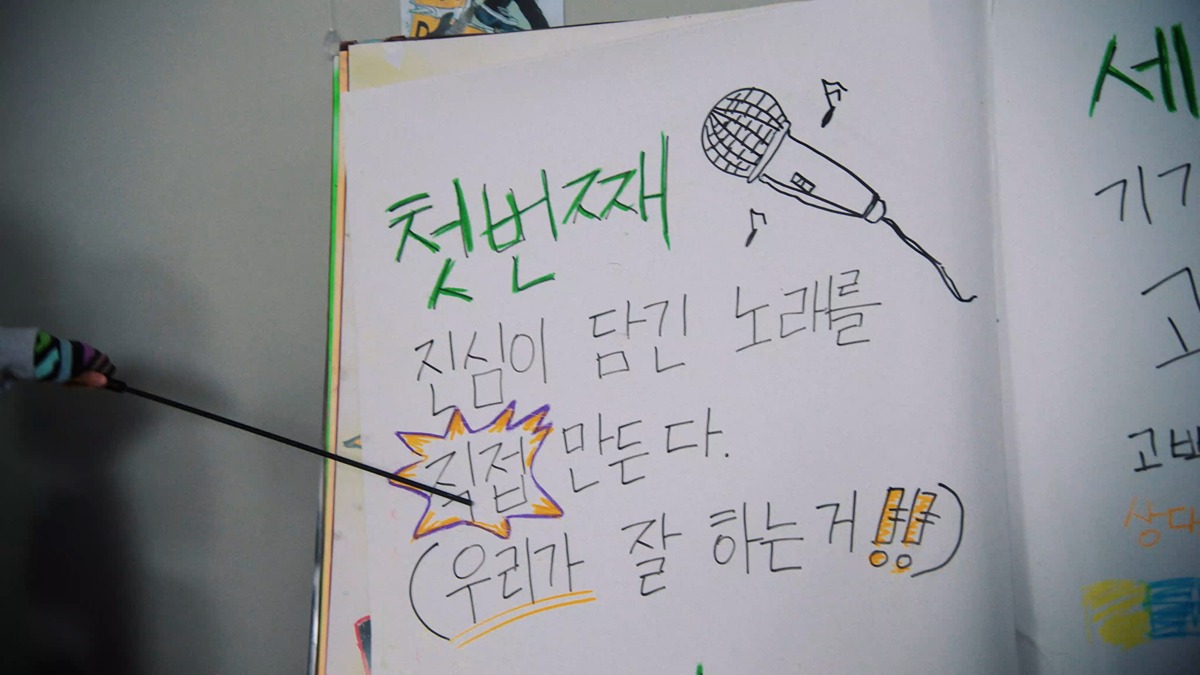 첫번째
진심이 담긴 노래를
직접 만든다.
(우리가 잘 하는거!!)
세
기기
고
고백
상대